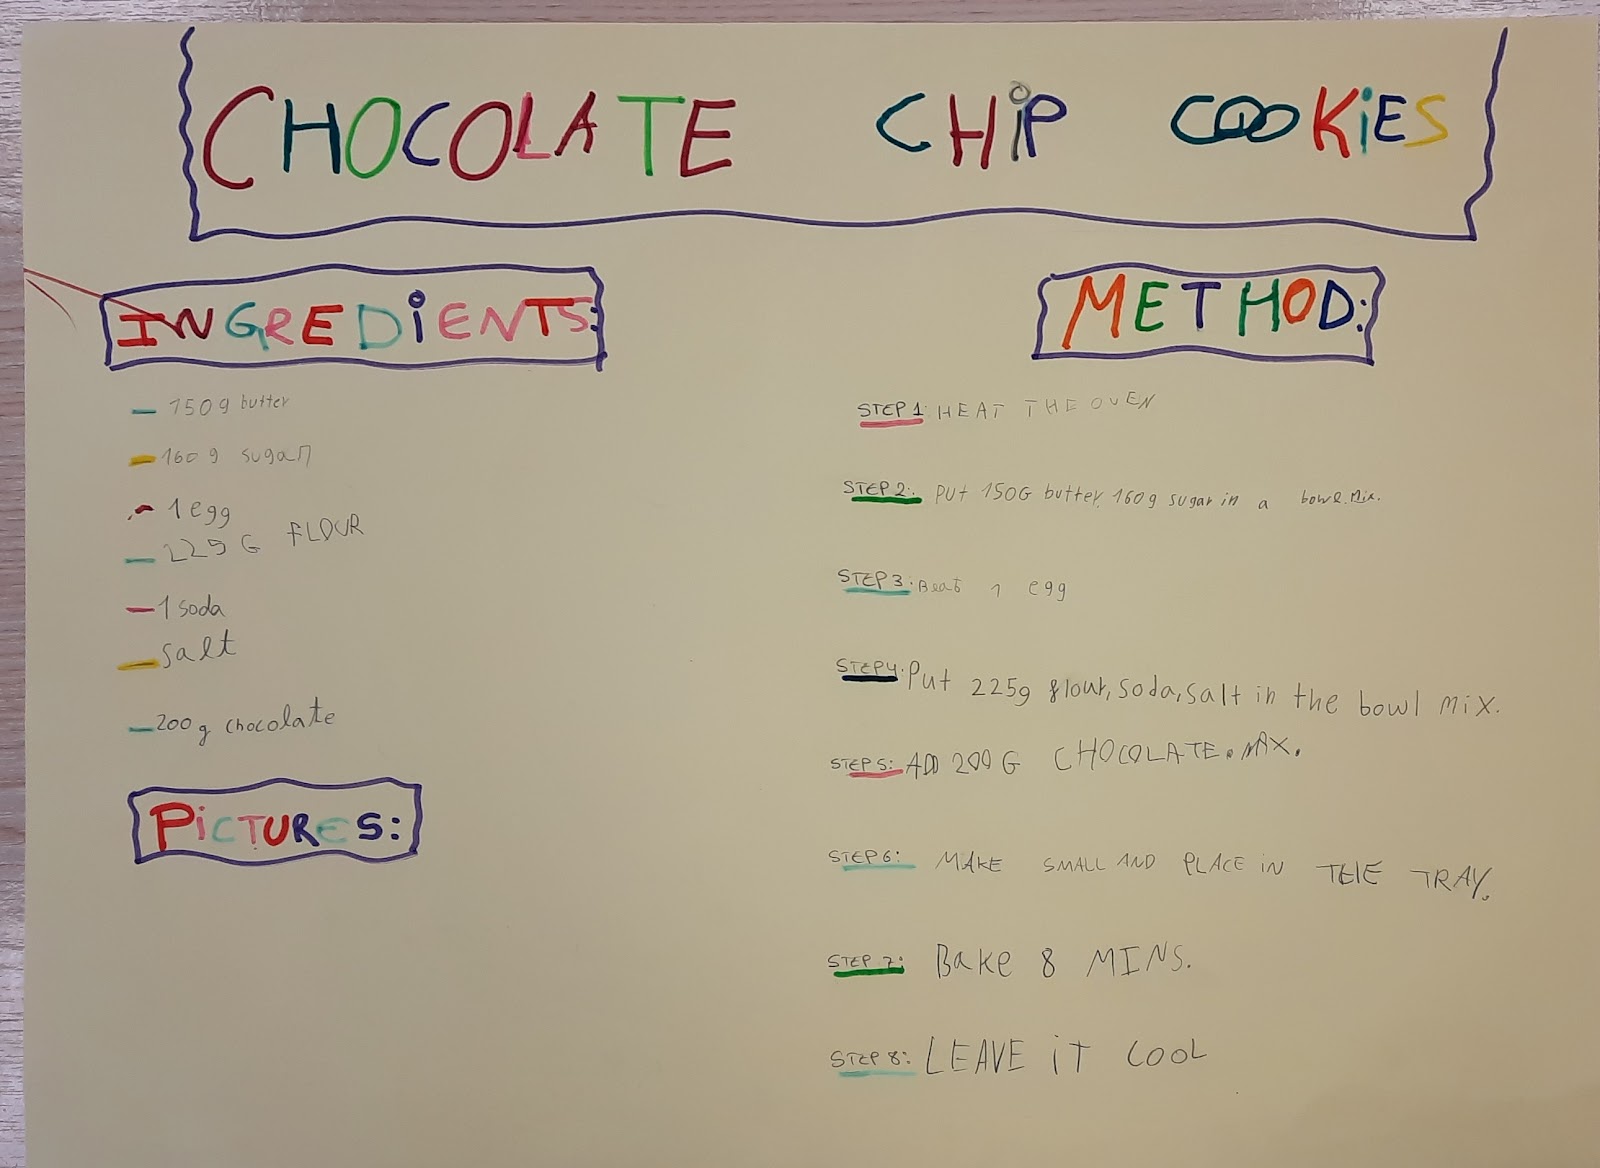 CHOCOLATE CHiP COOKiES
INGREDiENTS:
- 150g butter
- 160g sugar
- 1 egg
- 225G FLOUR
- 1 soda
- salt
- 200g chocolate
PiCTURES:
METHOD:
STEP 1: HEAT THE OVEN
STEP 2: PUt 150G butter, 160g sugar in a bowl. Mix.
STEP 3: Beat 1 egg
STEP 4: Put 225g flour, soda, salt in the bowl mix.
STEP 5: ADD 200 G CHOCOLATE. MIX.
STEP 6: MAKE SMALL AND PLACE iN THE TRAY.
STEP 7: BaKE 8 MINS.
STEP 8: LEAVE iT COOL